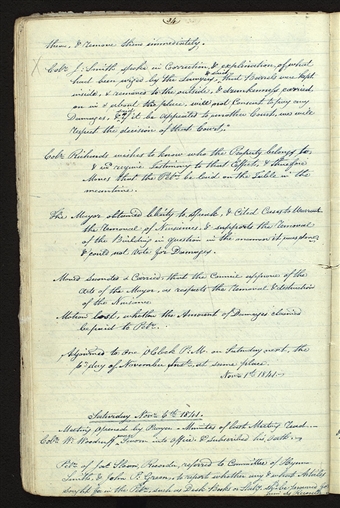 34
them, & remove them immediately.
X Colr. J. Smith spoke in Correction, & explination, of what
had been urged by the Lawyer, & said that Barrels were kept
inside, & removed to the outside, & drunkenness carried
on in & about the place, will not Consent to pay any
Damages, & if it be appealed to another Court, we will
respect the decision of that Court.
Colr. Richards wishes to know who the Property belongs to,
& requires testimony to that Effect, & therefore
Moves that the Petn. be laid on the Table in the
meantime.
The Mayor obtained liberty to speak, & Cited Cases to Warrant
the removal of Nuisances, & supports the removal
of the Building in question in the manner it was done,
& could not Vote for Damages.
Moved Seconded & Carried, that the Council approve of the
Acts of the Mayor, as respects the removal & destruction
of the Nuisance
Motion Lost, whether the Amount of Damages claimed
be paid to Petr.
Adjourned to One O'Clock P.M. on Saturday next, the
6th day of November Inst. at same place.
Nov. 1st 1841.
Saturday Nov. 6th 1841.
Meeting Opened by Prayer. Minutes of last Meeting Read.
Colr. W. Woodruff, Sworn into Office & subscribed his Oath.
Petn. of Jas. Sloan, Recorder, referred to Committee of Hyrum
Smith, & John P. Green, to report whether any & what Articles
sought for in the Petn. such as Desk Books or Staty. shall be procured for
him as Recorder